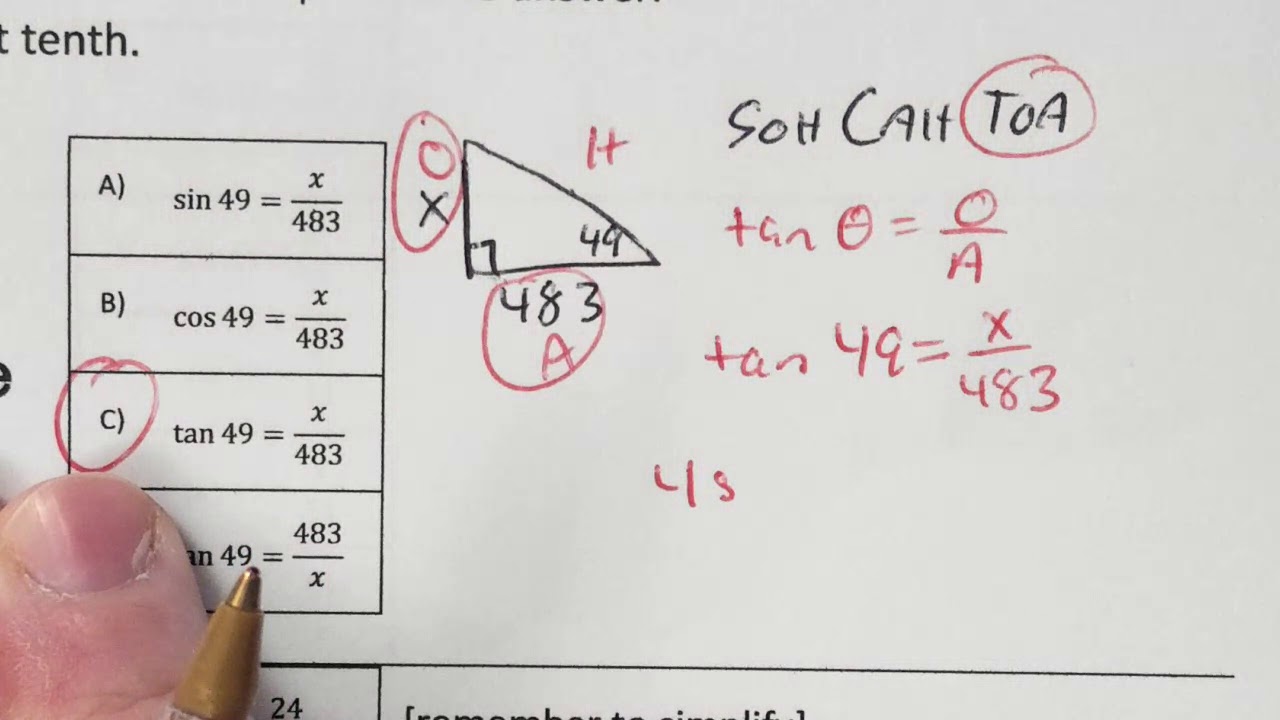 t tenth.
A) sin 49 = x/483
B) cos 49 = x/483
C) tan 49 = x/483
an 49 = 483/x
O
X
H
49
483
A
SOH CAH TOA
tan θ = O/A
tan 49 = x/483
24
[remember to simplify]